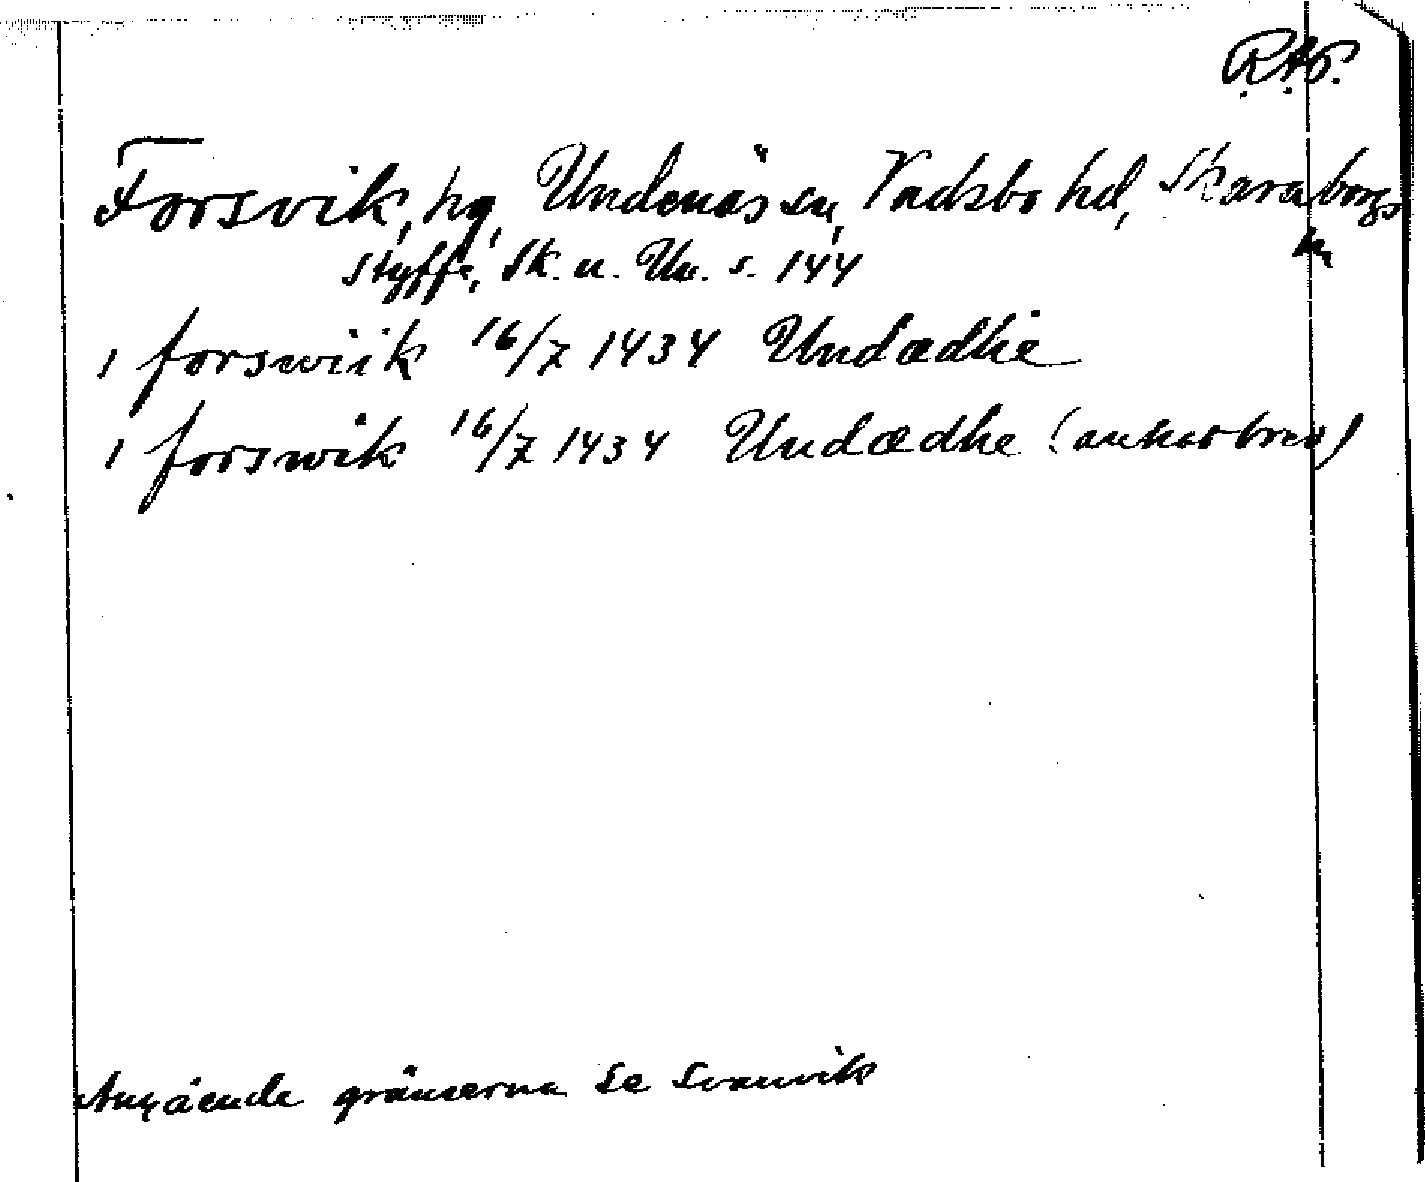 R.A.P.
Forsvik, hg, Undenäs sn, Vadsbo hd, Skaraborgs
ln
Styffe, Sk. u. Un. s. 144
i forswiik 16/7 1434 Undædhe
i forswik 16/7 1434 Undædhe (ankarbrev)
Angående gränserna se Svanvik